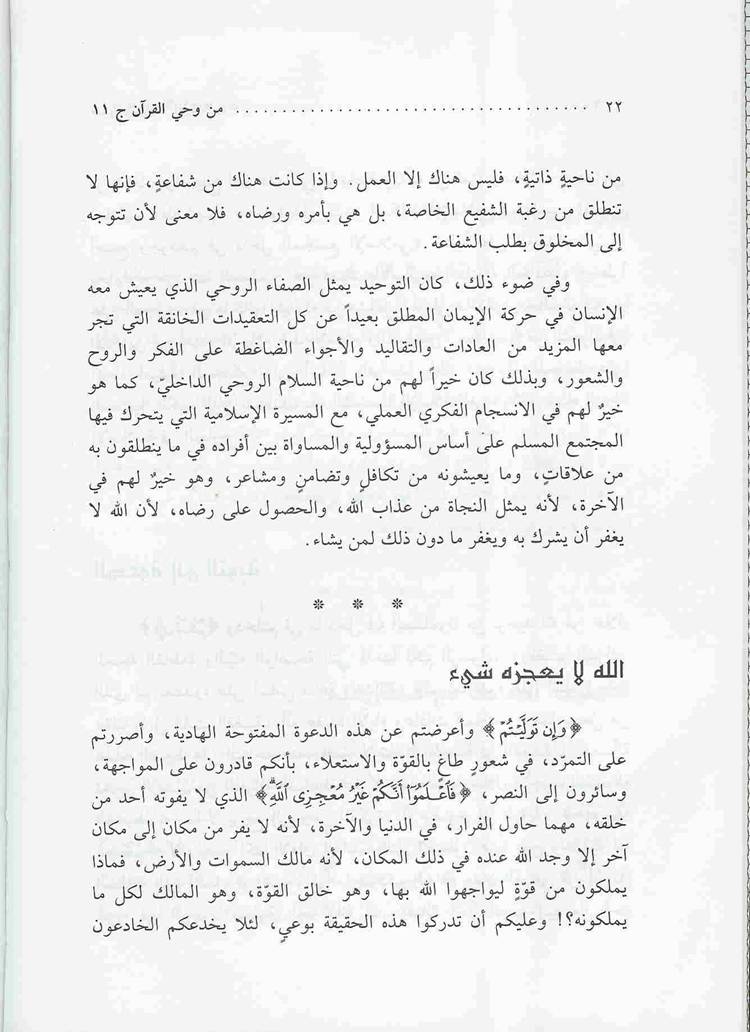 ٢٢ ...................................... من وحي القرآن ج ١١
من ناحيةٍ ذاتيةٍ، فليس هناك إلا العمل. وإذا كانت هناك من شفاعة، فإنها لا
تنطلق من رغبة الشفيع الخاصة، بل هي بأمره ورضاه، فلا معنى لأن تتوجه
إلى المخلوق بطلب الشفاعة.
وفي ضوء ذلك، كان التوحيد يمثل الصفاء الروحي الذي يعيش معه
الإنسان في حركة الإيمان المطلق بعيداً عن كل التعقيدات الخانقة التي تجر
معها المزيد من العادات والتقاليد والأجواء الضاغطة على الفكر والروح
والشعور، وبذلك كان خيراً لهم من ناحية السلام الروحي الداخليّ، كما هو
خيرٌ لهم في الانسجام الفكري العملي، مع المسيرة الإسلامية التي يتحرك فيها
المجتمع المسلم على أساس المسؤولية والمساواة بين أفراده في ما ينطلقون به
من علاقاتٍ، وما يعيشونه من تكافلٍ وتضامنٍ ومشاعر، وهو خيرٌ لهم في
الآخرة، لأنه يمثل النجاة من عذاب الله، والحصول على رضاه، لأن الله لا
يغفر أن يشرك به ويغفر ما دون ذلك لمن يشاء.
* * *
الله لا يعجزه شيء
﴿وَإِن تَوَلَّيْتُمْ﴾ وأعرضتم عن هذه الدعوة المفتوحة الهادية، وأصررتم
على التمرّد، في شعورٍ طاغٍ بالقوّة والاستعلاء، بأنكم قادرون على المواجهة،
وسائرون إلى النصر، ﴿فَاعْلَمُوا أَنَّكُمْ غَيْرُ مُعْجِزِى اللَّهِ﴾ الذي لا يفوته أحد من
خلقه، مهما حاول الفرار، في الدنيا والآخرة، لأنه لا يفر من مكان إلى مكان
آخر إلا وجد الله عنده في ذلك المكان، لأنه مالك السموات والأرض، فماذا
يملكون من قوّةٍ ليواجهوا الله بها، وهو خالق القوّة، وهو المالك لكل ما
يملكونه؟! وعليكم أن تدركوا هذه الحقيقة بوعيٍ، لئلا يخدعكم الخادعون